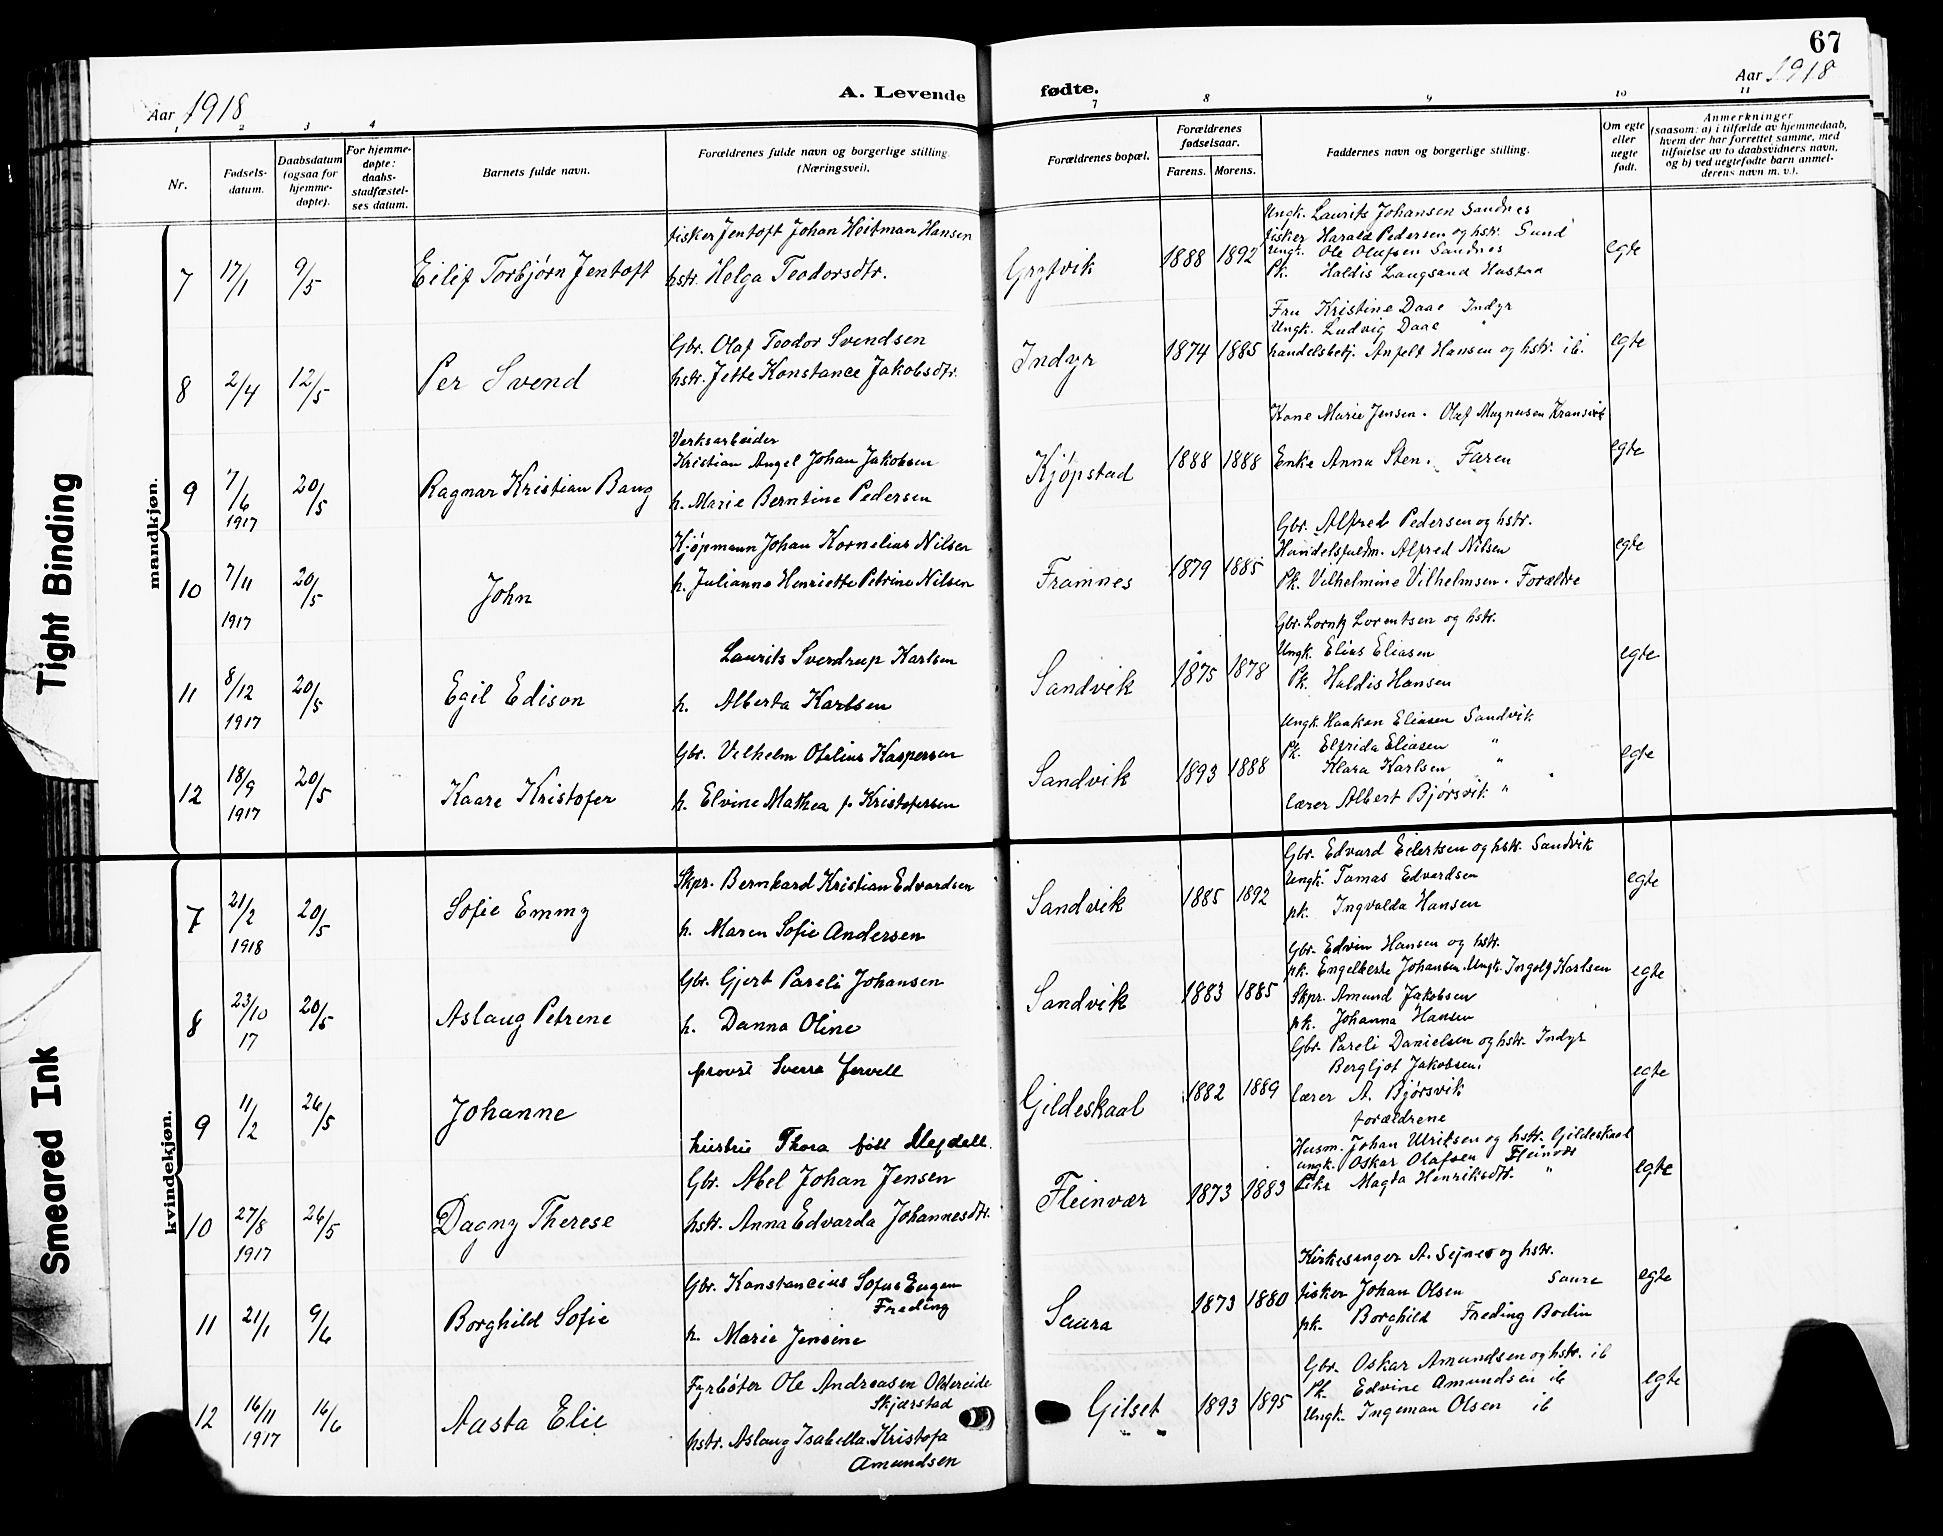 67
Aar 1918
A. Levende
fødte.
Aar 1918
1 2 3 4 7 8 9 10 11
Nr.
Fødsels-
datum.
Daabsdatum
(ogsaa for
hjemme-
døpte).
For hjemme-
døpte:
daabs-
stadfæstel-
ses datum.
Barnets fulde navn.
Forældrenes fulde navn og borgerlige stilling
(Næringsvei).
Forældrenes bopæl.
Forældrenes
fødselsaar.
Farens. Morens.
Faddernes navn og borgerlige stilling.
Om egte
eller
uegte
født.
Anmerkninger
(saasom: a) i tilfælde av hjemmedaab,
hvem der har forrettet samme, med
tilføielse av to daabsvidners navn,
og b) ved uegtefødte barn anmel-
derens navn m. v.).
Tight Binding
Smeared Ink
mandkjøn.
7 17/1 9/5 Eilif Torbjørn Jentoft
fisker Jentoft Johan Heitman Hansen
hstr. Helga Teodorsdtr.
1888 1892
Ungk. Laurits Johansen Sandnes
fisker Harald Pedersen og hstr. Sund
Ungk. Ole Olufsen Sandnes
Pk. Haldis Langsand Hustad
egte
8 2/4 12/5 Per Svend
Gbr. Olaf Teodor Svendsen
hstr. Jette Konstance Jakobsdtr.
Indyr 1874 1885
Fru Kristine Daae Indyr
Ungk. Ludvig Daae "
handelsbetj. Anfelt Hansen og hstr. ib.
egte
9 7/6 1917 20/5 Ragnar Kristian Bang
Verksarbeider
Kristian Angel Johan Jakobsen
h. Marie Berntine Pedersen
Kjøpstad 1888 1888
Kone Marie Jensen. Olaf Magnusen Kransvik
Enke Anna Sten. Faren
egte
10 7/11 1917 20/5 John
Kjøpmann Johan Kornelius Nilsen
h. Julianna Henriette Petrine Nilsen
Framnes 1879 1885
Gbr. Alfred Pedersen og hstr.
Handelsfuldm. Alfred Nilsen
Pk. Vilhelmine Vilhelmsen. Forældre
egte
11 8/12 1917 20/5 Egil Edison
Laurits Sverdrup Karlsen
h. Alberta Karlsen
Sandvik 1875 1878
Gbr. Lorntz Lorentsen og hstr.
Ungk. Elias Eliasen
Pk. Haldis Hansen
egte
12 18/9 1917 20/5 Kaare Kristofer
Gbr. Vilhelm Otelius Kaspersen
h. Elvine Mathea f. Kristofersen
Sandvik 1893 1888
Ungk. Haakon Eliasen Sandvik
Pk. Elfrida Eliasen "
Klara Karlsen "
lærer Albert Bjørsvik "
egte
kvindekjøn.
7 21/2 1918 20/5 Sofie Emmy
Skpr. Bernhard Kristian Edvardsen
h. Maren Sofie Andersen
Sandvik 1885 1892
Gbr. Edvard Eilertsen og hstr. Sandvik
Ungk. Tomas Edvardsen
pk. Ingvalda Hansen
egte
8 23/10 17 20/5 Aslaug Petrene
Gbr. Gjert Pareli Johansen
h. Danna Oline
Sandvik 1883 1885
Gbr. Edvin Hansen og hstr.
pk. Engelberte Johansen. Ungk. Ingolf Karlsen
Skpr. Amund Jakobsen
pk. Johanna Hansen
egte
9 11/2 26/5 Johanne
provst Sverra
hustru Thora født
Gildeskaal 1882 1889
Gbr. Pareli Danielsen og hstr. Indyr
Bergljot Jakobsen.
lærer A. Bjørsvik
forældrene
egte
10 27/8 1917 26/5 Dagny Therese
Gbr. Abel Johan Jensen
hstr. Anna Edvarda Johannesdtr.
Fleinvær 1873 1883
Husm. Johan Ulriksen og hstr. Gildeskaal
ungk. Oskar Olafsen Fleinvær
Pike Magda Henriksdtr. "
egte
11 21/1 9/6 Borghild Sofie
Gbr. Konstancius Sofus Eugen
Freding
h. Marie Jensine
Saura 1873 1880
Kirkesanger A. Sejnes og hstr.
fisker Johan Olsen Saura
pk. Borghild Freding Bodin
egte
12 16/11 1917 16/6 Aasta Elie
Fyrbøter Ole Andreasen Oldereide
Skjærstad
hstr. Aslaug Isabella Kristofa
Amundsen
Gilset 1893 1895
Gbr. Oskar Amundsen og hstr. ib
Pk. Edvine Amundsen ib
Ungk. Ingeman Olsen ib
egte